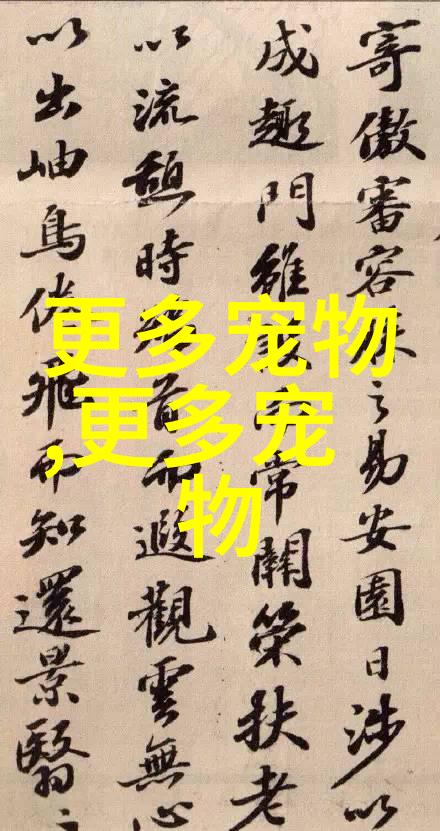 寄傲審容膝之易安園日涉以
成趣門雖設而常關策扶老
以流憩時矯首而遐觀雲無心
以出岫鳥倦飛而知還景翳
更多宠物
,更多宠
物